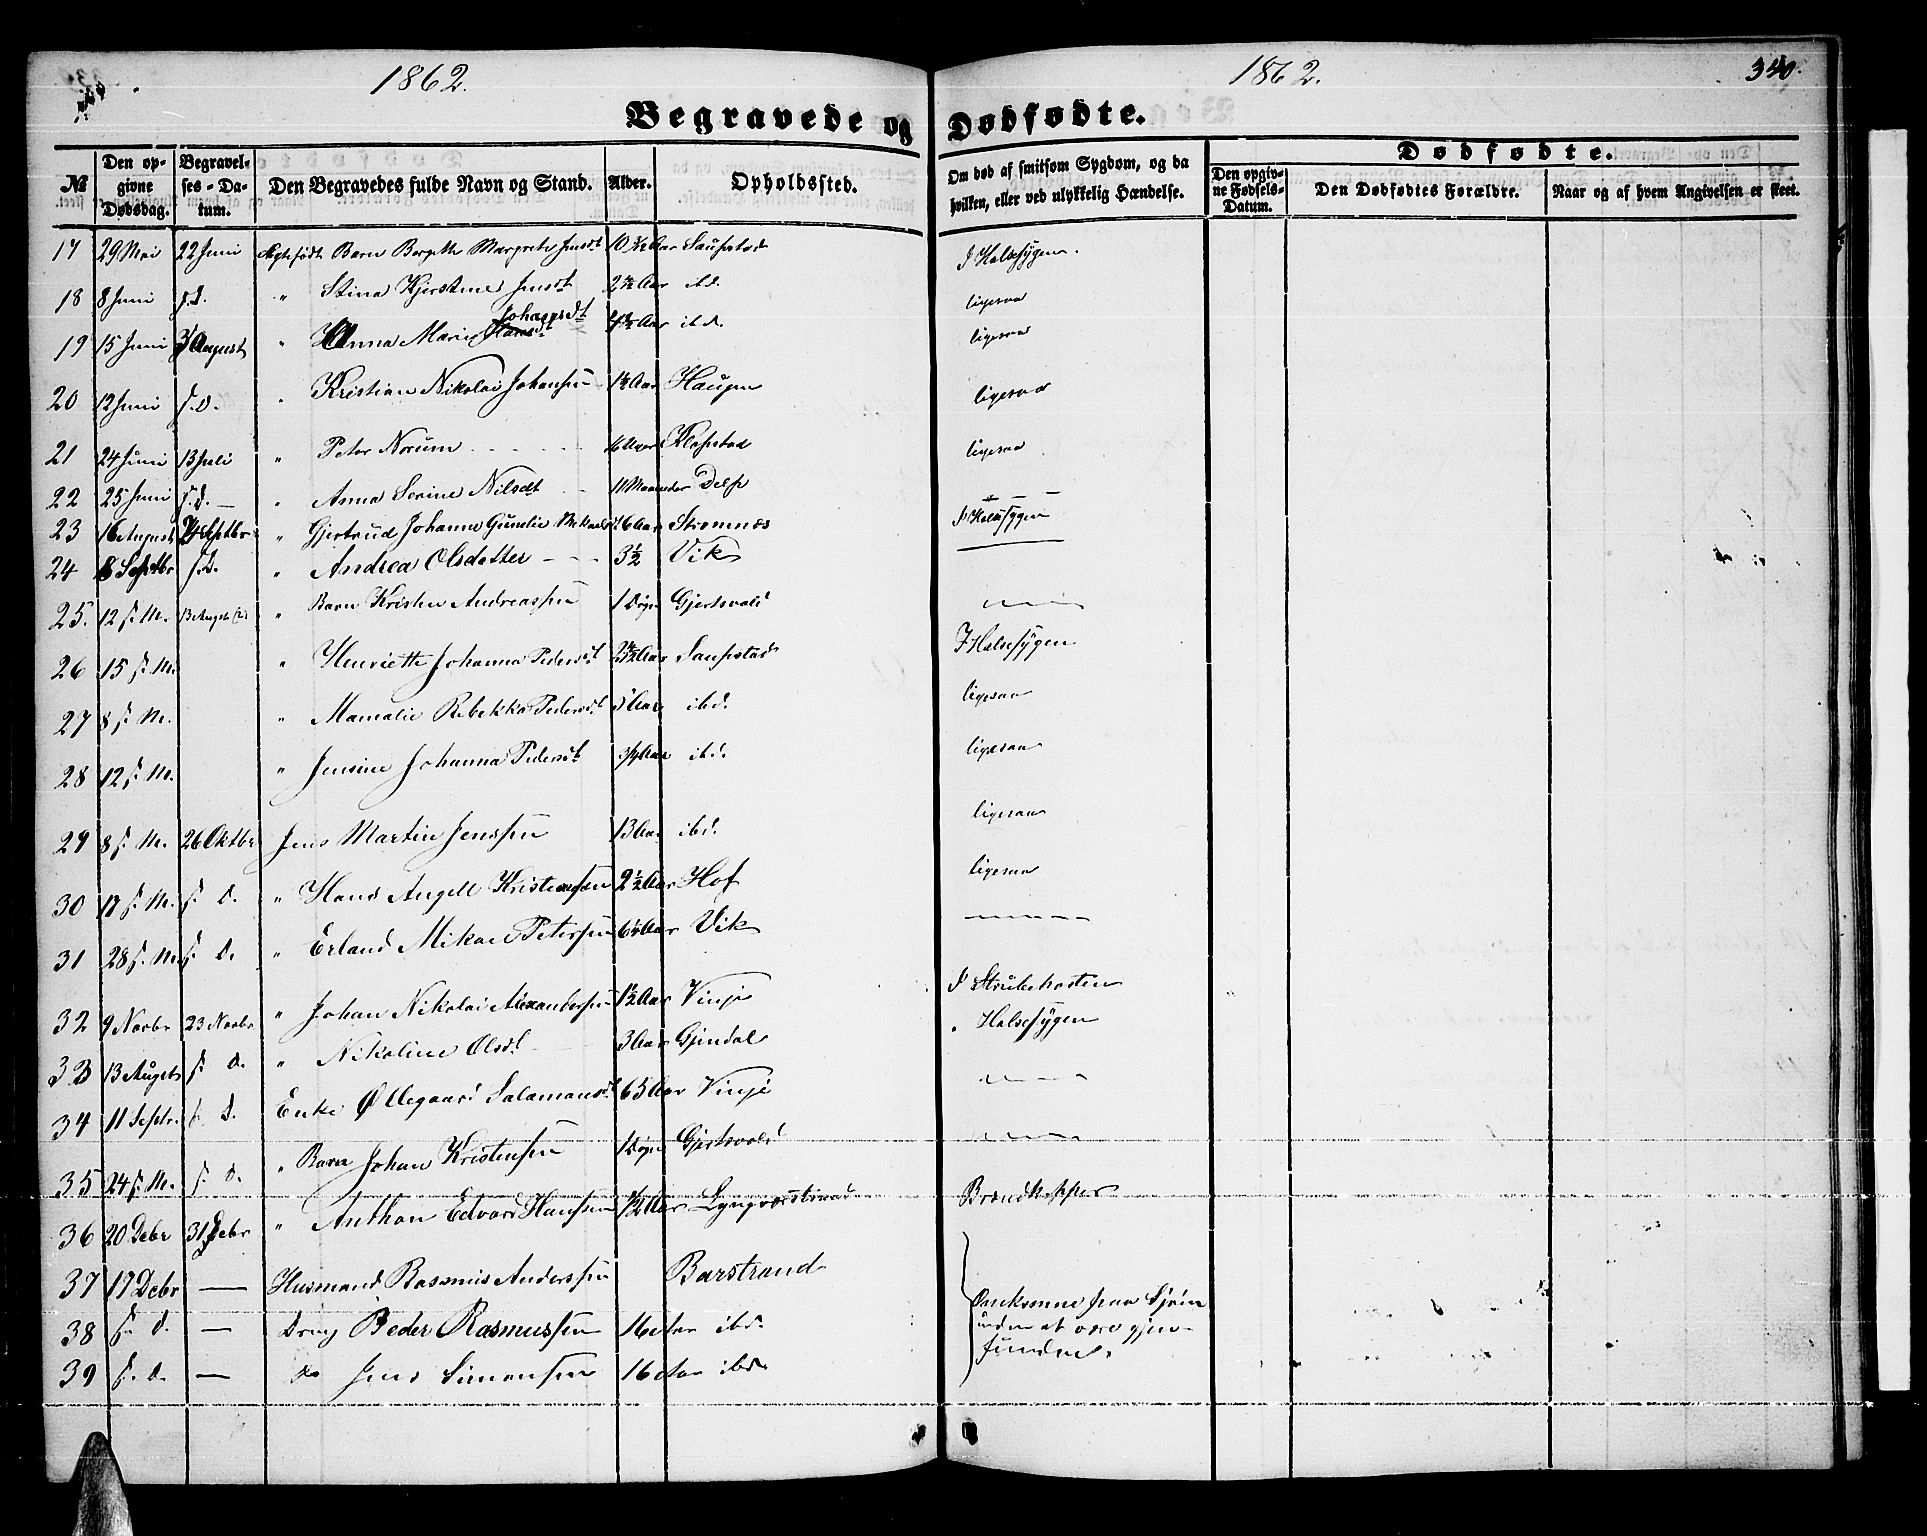 1862.
1862.
340.
Begravede og Dødfødte.
№
Den opgivne Dødsdag.
Begravelses-Datum.
Den Begravedes fulde Navn og Stand.
Alder.
Opholdssted.
Om død af smitsom Sygdom, og da hvilken, eller ved ulykkelig Hændelse.
Dødfødte.
Den opgivne Fødsels-Datum.
Den Dødfødtes Forældre.
Naar og af hvem Angivelsen er skeet.
17 29 Mai 22 Juni Ægtefødt Barn Bergitte Margrete Jensdt 10 Aar Saupstad I Halssygen.
18 8 Juni s. D. " Stina Kjerstine Jensdt 2½ Aar ibd. ligesaa
19 15 Juni 3 August " Anna Marie Johansdt Aar ibd. ligesaa
20 12 Juni s. D. " Kristian Nikolai Johansen 1½ Aar Haugen ligesaa
21 24 Juni 13 Juli " Peter Norum 6 Aar Klepstad ligesaa
22 25 Juni s. D. " Anna Serine Nilsdt 11 Maaneder Delp
23 16 August Septbr " Gjertrud Johanna Gunelie 6 Aar Strømnes I Halssygen
24 8 Septbr s. D. " Andrea Olsdatter 3½ Vik
25. 12 s. M. " Barn Kristen Andreassen 1 Døgn Gjertsvold
26 15 s. M. " Henriette Johanna Pedersdt 2½ Aar Saupstad I Halssygen
27 8 s. M. " Mamalie Rebekka Pedersdt 5 Aar ibd. ligesaa
28 12 s. M. " Jensine Johanna Pedersdt Aar ibd. ligesaa
29 8 s. M. 26 Oktbr Jens Martin Jenssen 13 Aar ibd. ligesaa
30 17 s. M. s. D. " Hans Angell Kristensen 2½ Aar Hof ligesaa
31 28 s. M. s. D. " Erland Mikael Peterssen 6½ Aar Vik
32 9 Novbr 23 Novbr " Johan Nikolai Alexanderssen 1½ Aar Vinje I Strubehosten
33 13 August s. D. " Nikoline Olsdt 3 Aar Gjendal " Halssygen
34 11 Septr. s. D. Enke Øllegaard Salamonsdt 65 Aar Vinje
35 24 s. M. s. D. " Barn Johan Kristensen 1 Døgn Gjertsvold
36 20 Debr 31 Debr " Anthon Edvard Hansen 1½ Aar Lyngværstrand Brandkopper
37 17 Debr — Husmand Rasmus Anderssen Barstrand
38 s. d. — Dreng Peder Rasmussen 16 Aar ibd.
39 s. d. — do Jens Simonsen 16 Aar ibd.
Omkomne paa Sjøen
uden at være gjen-
fundne.